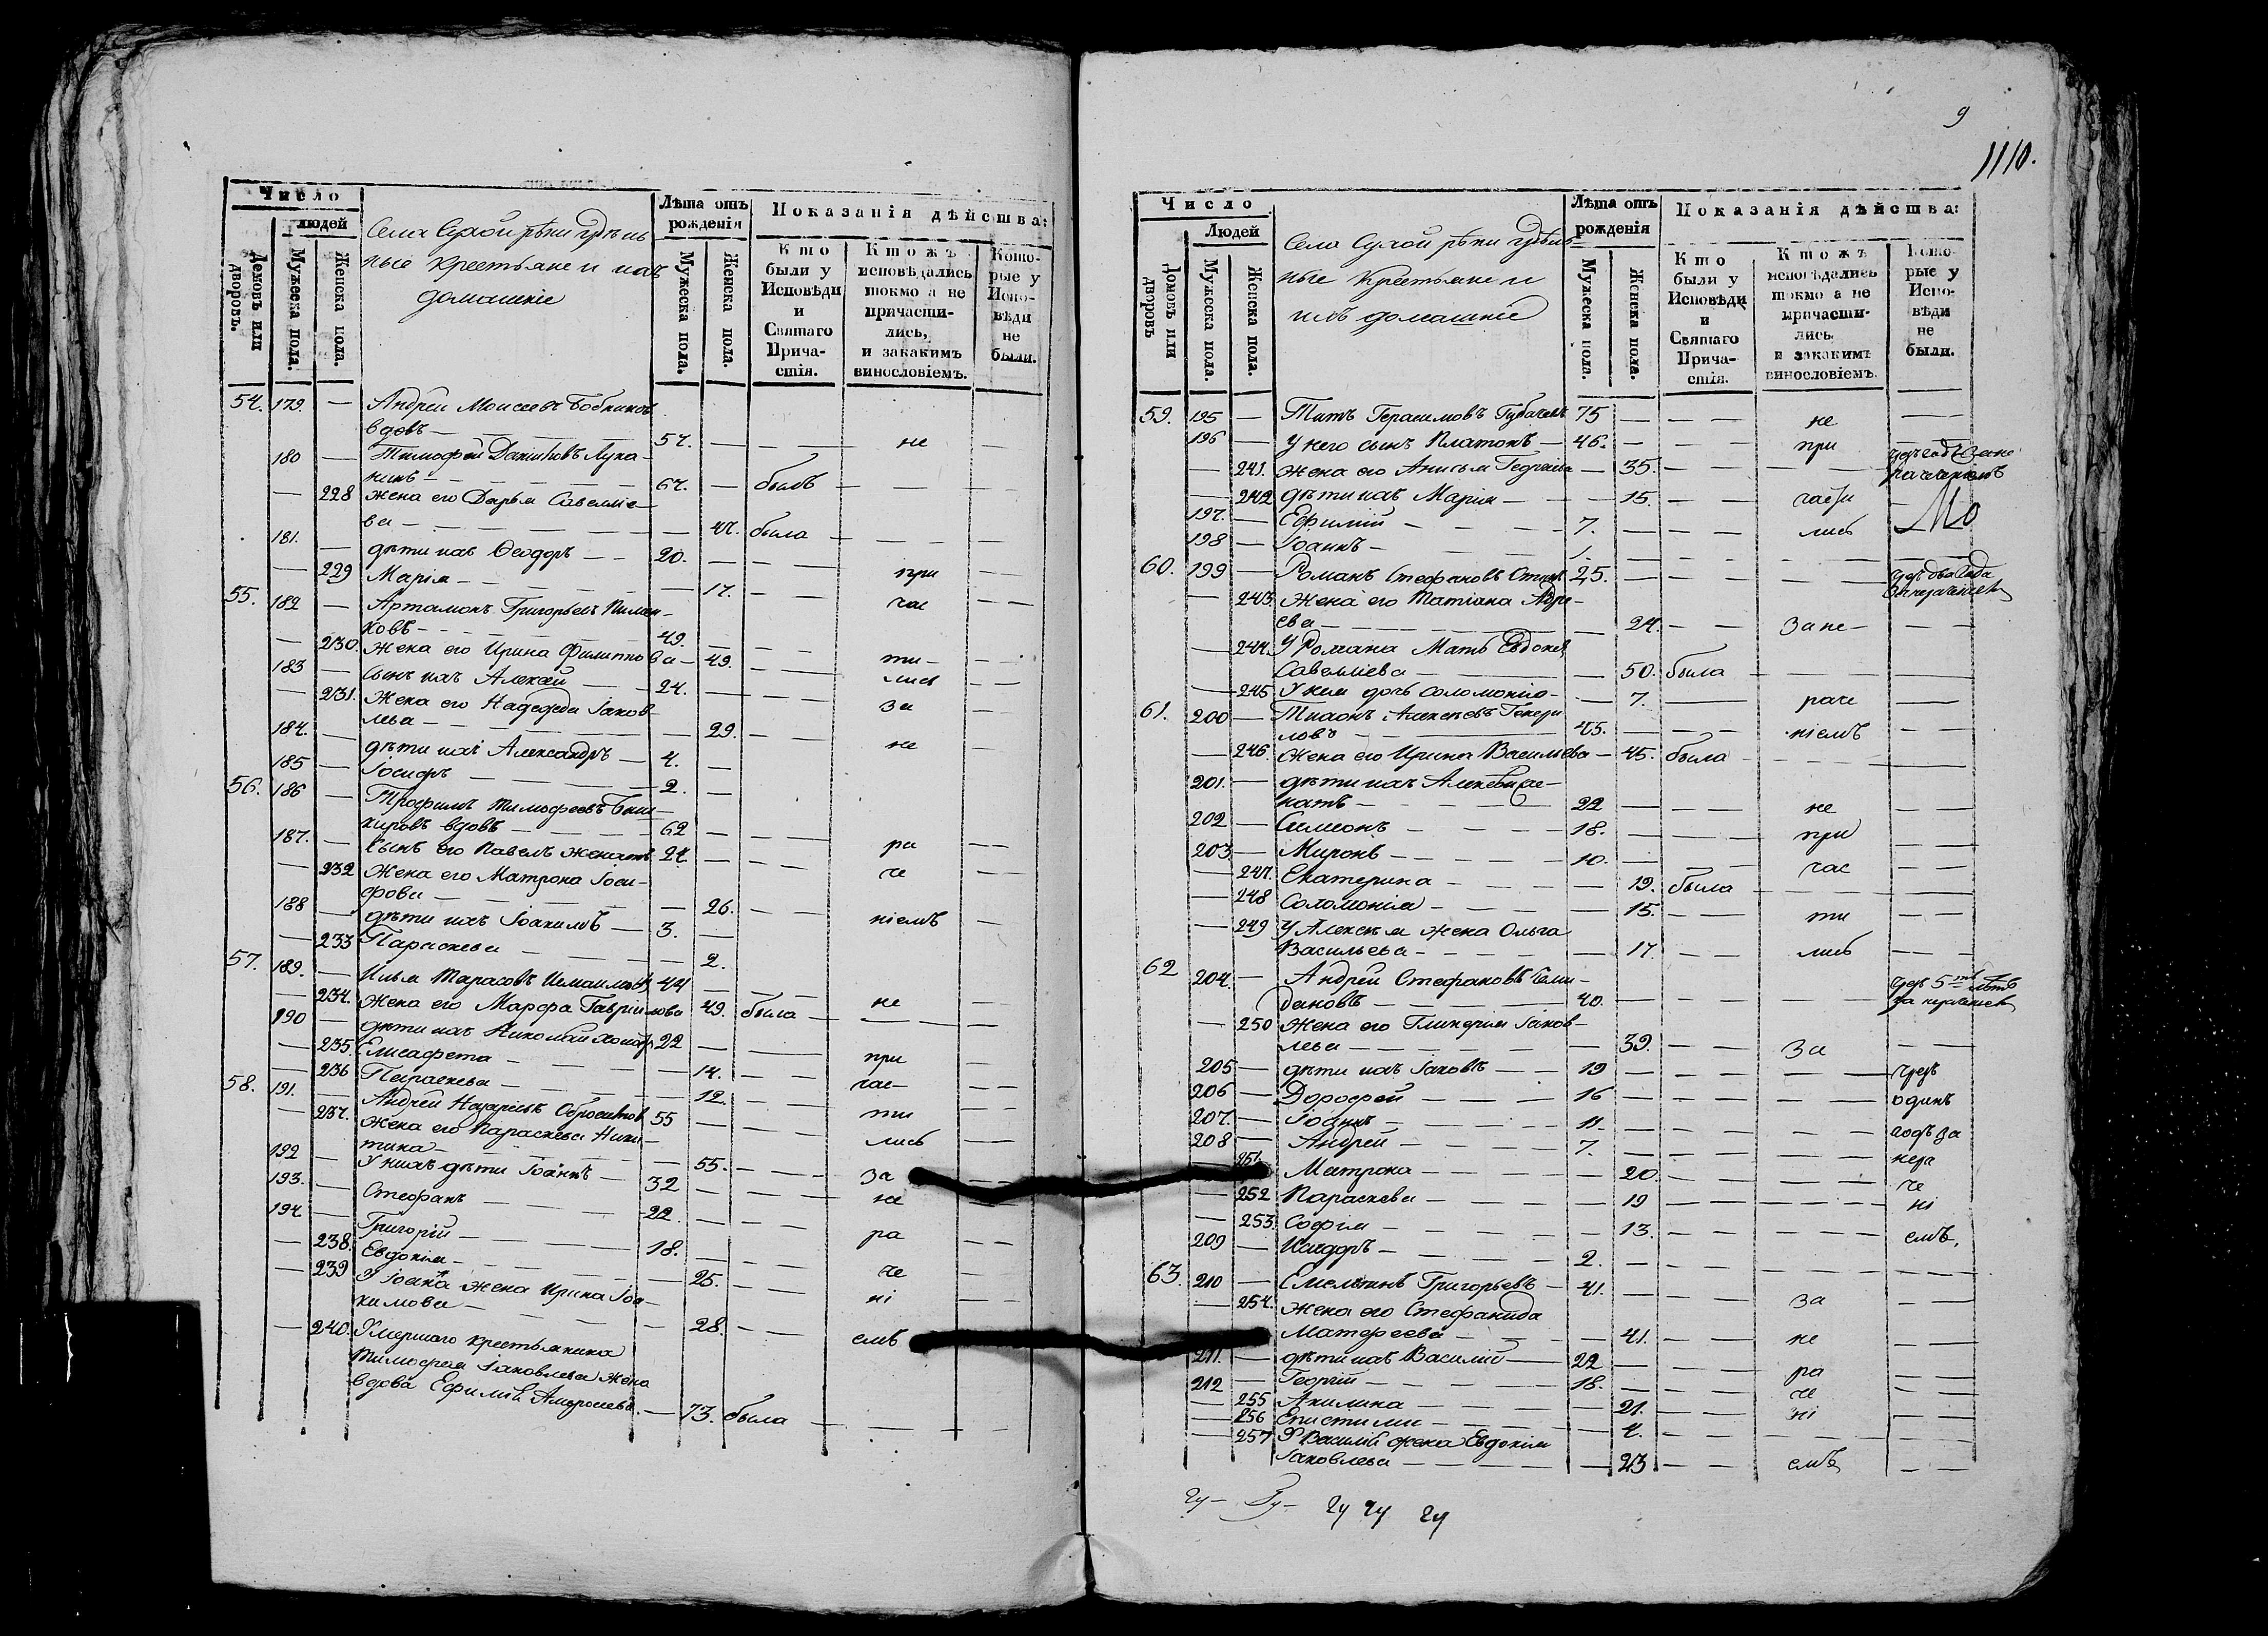 Число
людей
Домовъ или дворовъ.
Мужеска пола.
Женска пола.
Села Сухой рѣки
ные крестьяне и ихъ
домашніе
Лѣта отъ рожденія
Мужеска пола.
Женска пола.
Показанія дѣйства:
Кто были у Исповѣди и Святаго Причастія.
Кто жъ исповѣдались токмо а не причастились, и закакимъ винословіемъ.
Которые у Исповѣди не были.
54. 179. — Андрей Моисеевъ
вдовъ — 57. — — не —
180 — Тимофей
67. — былъ — —
— 228 жена его Дарья Савелліе-
ва — — 47. была — —
181. — дѣти ихъ Ѳеодоръ — 20. — —
— 229 Марія — — 17. — при —
55. 182 — Артамонъ Григорьевъ
ковъ — 49. — — час —
— 230. Жена его Ирина Филиппова — 49. — ти — —
183 — сынъ ихъ Алексей — 24. — — лись —
— 231. Жена его Надежда Іаков-
лева — — 29. — за —
184. — дѣти ихъ Александръ — 4. — не
185 — Іосифъ — 2. —
56. 186 — Трофимъ Тимофеевъ
кировъ вдовъ — 62 — —
187. — сынъ его Павелъ женатъ 24. — — ра —
— 232 Жена его Матрона Іоси-
фова — — 26. — че —
188 — дѣти ихъ Іоакимъ — 3. — ніемъ —
— 233 Параскева — — 2.
57. 189. — Илья Тарасовъ 44 — —
— 234. Жена его Марфа Гавріилова 49. была — не —
190 — дѣти ихъ Николай 22 — —
— 235. Елисафета — — 14. — при —
— 236 Параскева — — 12. — час — —
58. 191. — Андрей 55 — — ти —
— 237. Жена его Параскева Ники-
тина — — 55. — лись —
192 — У нихъ дѣти Іоаннъ — 32 — — за —
193. — Стефанъ — 22. — — не
194 — Григорій — 18. — — ра —
— 238. Евдокія — — 25. — че —
— 239 У Іоанна жена Ирина Іоа-
кимова — — 28. — ні —
— 240. Умершаго крестьянина емъ
Тимофея Іаковлева жена
вдова — 73. была — —
9
1110.
Число
Людей
Домовъ или дворовъ
Мужеска пола.
Женска пола.
Села Сухой рѣки
ные Крестьяне и
ихъ домашніе
Лѣта отъ рожденія
Мужеска пола.
Женска пола.
Показанія дѣйства:
Кто были у Исповѣди и Святаго Причастія.
Кто жъ исповѣдались токмо а не причастились, и закакимъ винословіемъ.
Которые у Исповѣди не были.
59. 195 — Титъ Герасимовъ 75 — — не —
196 — У него сынъ Платонъ — 46. — — при —
— 241. жена его Анисья Георгіева — 35. — —
— 242 дѣти ихъ Марія — — 15. — части
197. — Ефимій — 7. — — лись
198 — Іоаннъ — 1. — —
60. 199 — Романъ Стефановъ 25. — — чрезъ два года
— 243. Жена его Татіана
ева — — 24. — за не — —
— 244. У Романа Мать Евдокія
Савелліева — — 50. была — —
— 245 У нея дочь Соломонія — — 7. — раче —
61. 200 — Тихонъ Алексѣевъ
ловъ — 45. — — ніемъ —
— 246. Жена его Ирина Васильева — 45. была — —
201. — дѣти ихъ Алексѣй же-
натъ — 22 — — не —
202 — Симеонъ — 18. — — при —
203 — Миронъ — 10. — — час —
— 247. Екатерина — — 19. была — —
— 248 Соломонія — — 15. — ти —
— 249 У Алексѣя жена Ольга
Васильева — — 17. — лись —
62 204. — Андрей Стефановъ
деновъ — 40. — — чрезъ 5ть лѣтъ
— 250 Жена его Гликерія Іаков-
лева — — 39. — за —
205 — дѣти ихъ Іаковъ — 19 — — чрезъ
206 — Дорофей — 16 — — одинъ
207. — Іоаннъ — 11. — — годъ за
208 — Андрей — 7. — — нера
251. Матрона — — 20. — — че
— 252 Параскева — — 19 — — ні
— 253. Софія — — 13. — — емъ,
209 — Исидоръ — 2. — —
63. 210 — Емельянъ Григорьевъ — 41. — — за —
— 254. Жена его Стефанида
Матфеева — — 41. — не —
211. — дѣти ихъ Василій — 22 — — ра —
212 — Георгій — 18. — — че —
— 255 Акилина — — 21. — ні —
— 256 Епистимія — — 4. — —
— 257 У Василія жена Евдокія
Іаковлева — — 23 — емъ —